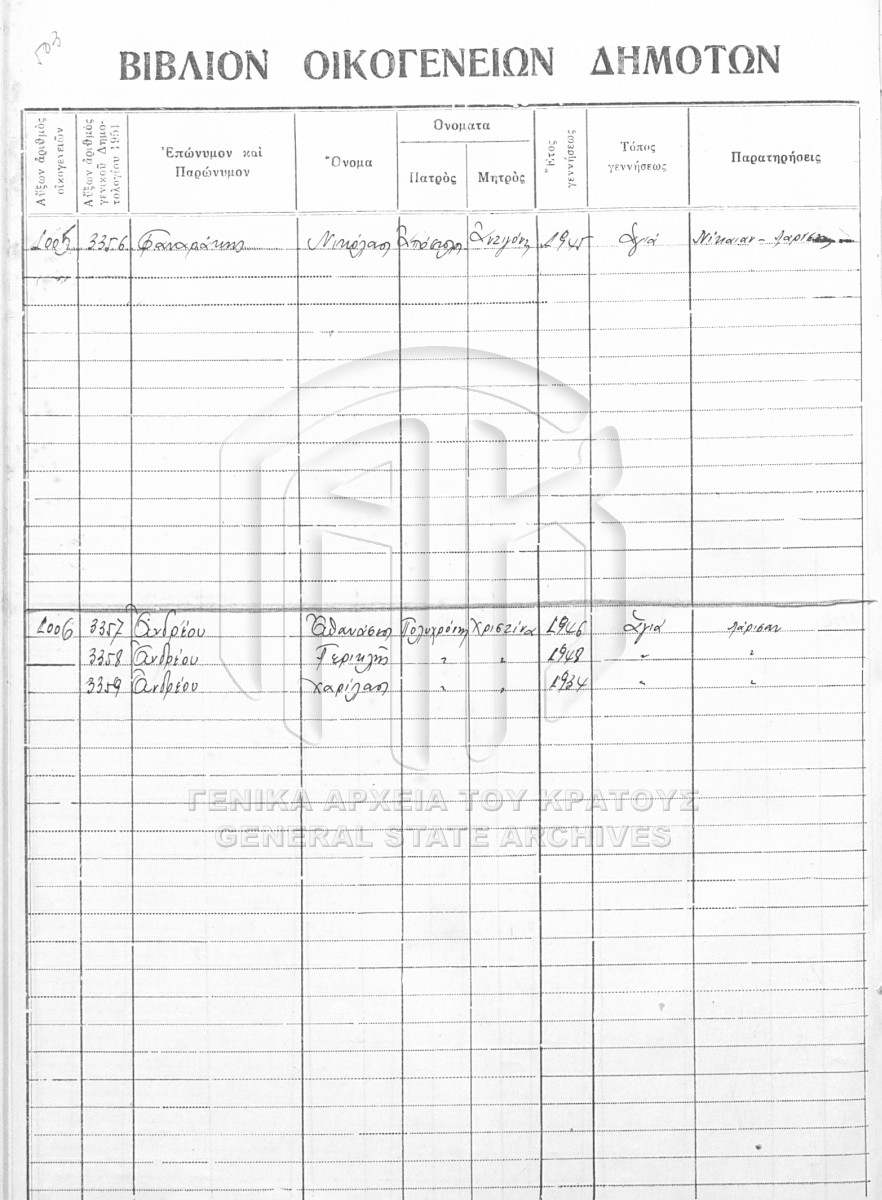 503
ΒΙΒΛΙΟΝ ΟΙΚΟΓΕΝΕΙΩΝ ΔΗΜΟΤΩΝ
Αὔξων ἀριθμὸς οἰκογενειῶν
Αὔξων ἀριθμὸς γενικοῦ Δημοτολογίου 1951
Ἐπώνυμον καὶ Παρώνυμον
Ὄνομα
Ονοματα
Πατρὸς
Μητρὸς
Ἔτος γεννήσεως
Τόπος γεννήσεως
Παρατηρήσεις
1005 3356 Φαναράκης Νικόλαος 1945 Ἁγιά
1006 3357 Ἀνδρέου Ἀθανάσιος Πολυχρόνη Χριστίνα 1946 Ἁγιά Λάρισαν
3358 Ἀνδρέου Περικλῆς " " 1948 " "
3359 Ἀνδρέου Χαρίλαος " " 1934 " "
ΓΕΝΙΚΑ ΑΡΧΕΙΑ ΤΟΥ ΚΡΑΤΟΥΣ
GENERAL STATE ARCHIVES